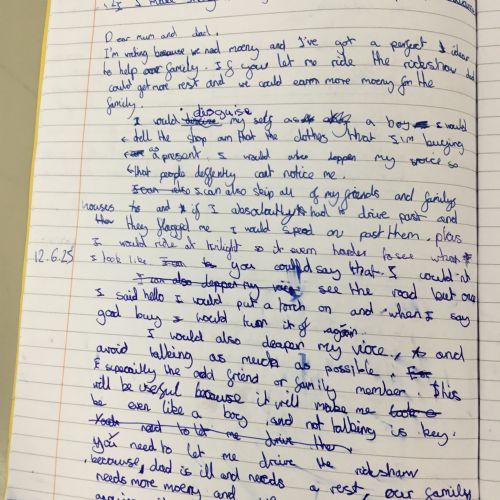 Dear mum and dad,
I'm writing because we need moeny and I've got a perfect idear
to help family. If you let me ride the rideshow dad
could get more rest and we could earn more moeny for the
family.
disguise
I would my self as a boy I would
tell the shop own that the clothes that I'm buying
as a present. I would deppen my voice so
that people deffently cant notice me.
I can also skip all of my friends and familys
houses and if I absaloutly had to drive past and
they flagged me I would speed on past them. plus
I would ride at twilight so it even harder to see what
12.6.25 I look like you could say that I could'nt
see the road but one
I said hello I would put a torch on and when I say
good buy I would turn it of again.
I would also deapen my voice, and
avoid talking as much as possible,
especially the odd friend or family member. This
will be useful because it will make me
be even like a boy and not talking is key.
You need to let me drive the rideshaw
because, dad is ill and needs a rest, our family
needs more moeny and